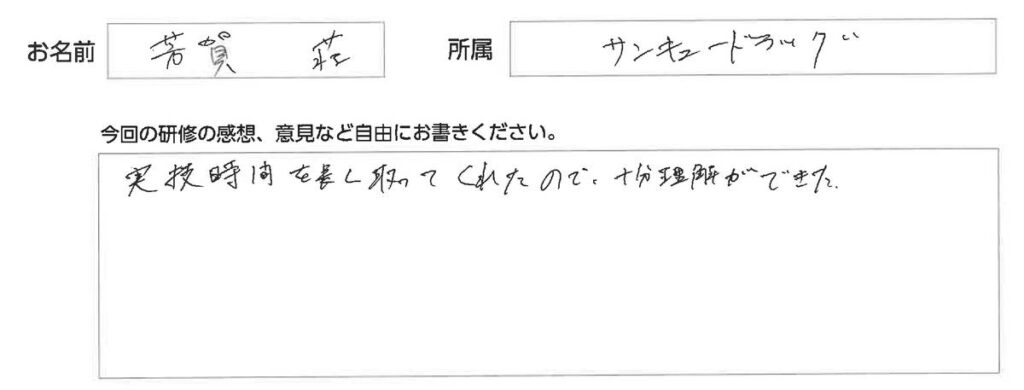 お名前 芳賀 荘 所属 サンキュードラッグ
今回の研修の感想、意見など自由にお書きください。
実技時間を長く取ってくれたので、十分理解ができた。